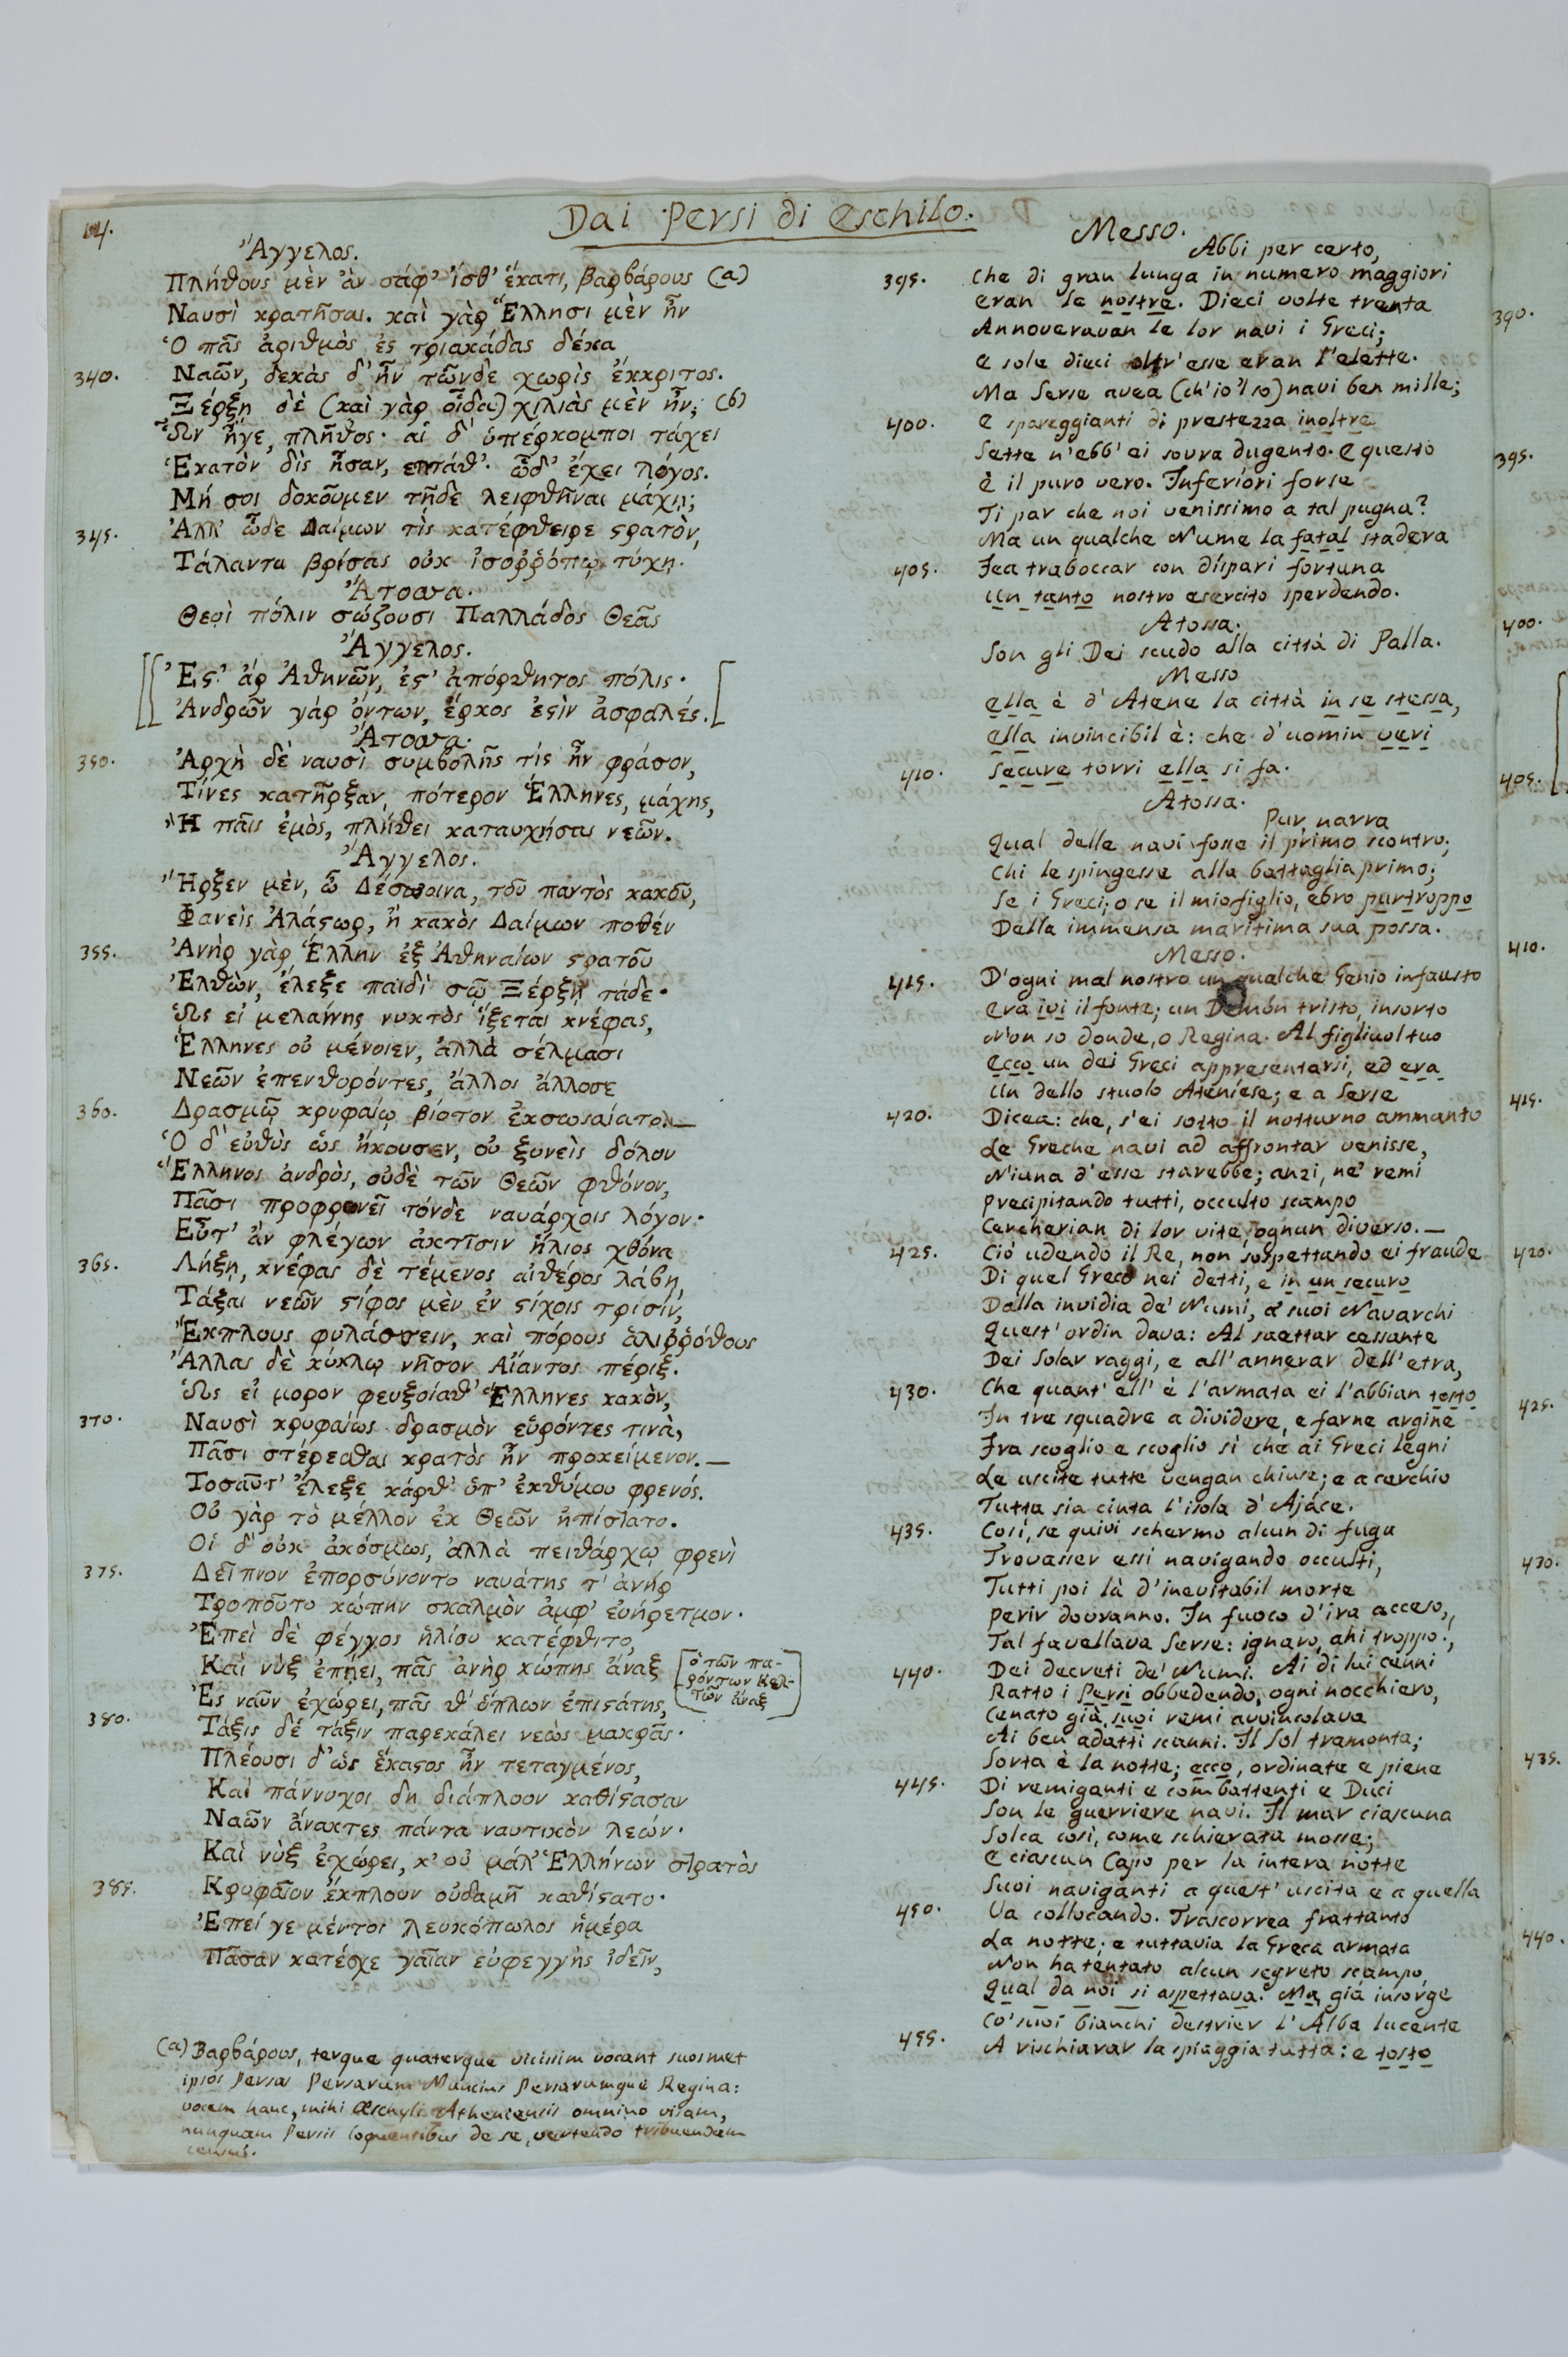 14.
Dai Persi di Eschilo.
Ἄγγελος.
Πλήθους μὲν ἂν σάφ' ἴσθ' ἕκατι, βαρβάρους (a)
Ναυσὶ κρατῆσαι. καὶ γὰρ Ἕλλησι μὲν ἦν
Ὁ πᾶς ἀριθμὸς ἐς τριακάδας δέκα
340. Ναῶν, δεκὰς δ' ἦν τῶνδε χωρὶς ἔκκριτος.
Ξέρξῃ δὲ (καὶ γὰρ οἶδα) χιλιὰς μὲν ἦν; (b)
Ὧν ἦγε, πλῆθος· αἱ δ' ὑπέρκομποι τάχει
Ἑκατὸν δὶς ἦσαν, επτάθ'. ὧδ' ἔχει λόγος.
Μή σοι δοκοῦμεν τῇδε λειφθῆναι μάχῃ;
345. Ἀλλ' ὧδε Δαίμων τὶς κατέφθειρε ϛρατὸν,
Τάλαντα βρίσας οὐκ ἰσοῤῥόπῳ τύχῃ.
Ἄτοσσα.
Θεοὶ πόλιν σώζουσι Παλλάδος Θεᾶς
Ἄγγελος.
[[ Ἔϛ' ἄρ Ἀθηνῶν, ἔϛ' ἀπόρθητος πόλις·
Ἀνδρῶν γὰρ ὄντων, ἕρκος ἐϛὶν ἀσφαλές. [
Ἄτοσσα.
350. Ἀρχὴ δὲ ναυσὶ συμβολῆς τίς ἦν φράσον,
Τίνες κατῆρξαν, πότερον Ἕλληνες, μάχης,
Ἢ παῖς ἐμὸς, πλήθει καταυχήσας νεῶν.
Ἄγγελος.
Ἦρξεν μὲν, ὦ Δέσποινα, τοῦ παντὸς κακοῦ,
Φανεὶς Ἀλάϛωρ, ἢ κακὸς Δαίμων ποθέν
355. Ἀνὴρ γὰρ Ἕλλην ἐξ Ἀθηναίων ϛρατοῦ
Ἐλθὼν, ἔλεξε παιδὶ σῷ Ξέρξῃ τάδε·
Ὡς εἰ μελαίνης νυκτὸς ἵξεται κνέφας,
Ἕλληνες οὐ μένοιεν, ἀλλὰ σέλμασι
Νεῶν ἐπενθορόντες, ἄλλος ἄλλοσε
360. Δρασμῷ κρυφαίῳ βίοτον ἐκσωσαίατο.—
Ὁ δ' εὐθὺς ὡς ἤκουσεν, οὐ ξυνεὶς δόλον
Ἕλληνος ἀνδρὸς, οὐδὲ τῶν Θεῶν φθόνον,
Πᾶσι προφωνεῖ τόνδε ναυάρχοις λόγον·
Εὖτ' ἂν φλέγων ἀκτῖσιν ἥλιος χθόνα
365. Λήξῃ, κνέφας δὲ τέμενος αἰθέρος λάβῃ,
Τάξαι νεῶν ϛίφος μὲν ἐν ϛίχοις τρισίν,
Ἔκπλους φυλάσσειν, καὶ πόρους ἁλιῤῥόθους
Ἄλλας δὲ κύκλῳ νῆσον Αἴαντος πέριξ.
Ὡς εἰ μορον φευξοίαθ' Ἕλληνες κακὸν,
370. Ναυσὶ κρυφαίως δρασμὸν εὑρόντες τινὰ,
Πᾶσι στέρεσθαι κρατὸς ἦν προκείμενον.—
Τοσαῦτ' ἔλεξε κάρθ' ὑπ' ἐκθύμου φρενός.
Οὐ γὰρ τὸ μέλλον ἐκ Θεῶν ἠπίστατο.
Οἱ δ' οὐκ ἀκόσμως, ἀλλὰ πειθάρχῳ φρενὶ
375. Δεῖπνον ἐπορσύνοντο ναυάτης τ' ἀνὴρ
Τροποῦτο κώπην σκαλμὸν ἀμφ' ευήρετμον.
Ἐπεὶ δὲ φέγγος ἡλίου κατέφθιτο,
Καὶ νὺξ ἐπῄει, πᾶς ἀνὴρ κώπης ἄναξ
Ἐς ναῦν ἐχώρει, πᾶς θ' ὅπλων ἐπιϛάτης,
380. Τάξις δὲ τάξιν παρεκάλει νεὼς μακρᾶς·
Πλέουσι δ' ὡς ἕκαϛος ἦν τεταγμένος,
Καὶ πάννυχοι δη διάπλοον καθίϛασαν
Ναῶν ἄνακτες πάντα ναυτικὸν λεών.
Καὶ νὺξ ἐχώρει, κ' οὐ μάλ' Ἑλλήνων στρατὸς
385. Κρυφαῖον ἔκπλουν οὐδαμῇ καθίϛατο.
Ἐπεί γε μέντοι λευκόπωλος ἡμέρα
Πᾶσαν κατέσχε γαῖαν εὐφεγγὴς ἰδεῖν,
(a) Βαρβάρους, terque quaterque vicissim vocant suosmet
ipsos Persas Persarum Nuncius Persarumque Regina:
vocem hanc, mihi Æschyli Atheniensis omnino visam,
nunquam Persis loquentibus de se, vertendo tribuendam
census.
Messo.
Abbi per certo,
395. Che di gran lunga in numero maggiori
Eran le nostre. Dieci volte trenta
Annoveravan le lor navi i Greci;
E sole dieci oltr'esse eran l'elette.
Ma Serse avea (ch'io 'l so) navi ben mille;
400. E spareggianti di prestezza inoltre
Sette n'ebb'ei sovra dugento. E questo
È il puro vero. Inferiori forse
Ti par che noi venissimo a tal pugna?
Ma un qualche Nume la fatal stadera
405. Fea traboccar con dispari fortuna
Un tanto nostro esercito sperdendo.
Atossa.
Son gli Dei scudo alla città di Palla.
Messo
Ella è d'Atene la città in se stessa,
Ella invincibil è: che d'uomin veri
410. Secure torri ella si fa.
Atossa.
Pur narra
Qual delle navi fosse il primo scontro;
Chi le spingesse alla battaglia primo;
Se i Greci; o se il mio figlio, ebro purtroppo
Della immensa marittima sua possa.
Messo.
415. D'ogni mal nostro un qualche Genio infausto
Era ivi il fonte; un Demón tristo, insorto
Non so donde, o Regina. Al figliuol tuo
Ecco un dei Greci appresentarsi, ed era
Un dello stuolo Ateniese; e a Serse
420. Dicea: che, s'ei sotto il notturno ammanto
Le Greche navi ad affrontar venisse,
Niuna d'esse starebbe; anzi, ne' remi
Precipitando tutti, occulto scampo
Cercherian di lor vite, ognun diverso.—
425. Ciò udendo il Re, non sospettando ei fraude
Di quel Greco nei detti, e in un securo
Dalla invidia de' Numi, a' suoi Navarchi
Quest'ordin dava: Al saettar cessante
Dei Solar raggi, e all'annerar dell'etra,
430. Che quant'ell'è l'armata ei l'abbian tosto
In tre squadre a dividere, e farne argine
Fra scoglio e scoglio sì che ai Greci legni
Le uscite tutte vengan chiuse; e a cerchio
Tutta sia cinta l'isola d'Ajáce.
435. Così, se quivi schermo alcun di fuga
Trovasser essi navigando occulti,
Tutti poi là d'inevitabil morte
Perir dovranno. In fuoco d'ira acceso,
Tal favellava Serse: ignaro, ahi troppo!,
440. Dei decreti de' Numi. Ai di lui cenni
Ratto i Persi obbedendo, ogni nocchiero,
Cenato già, suoi remi avvincolava
Ai ben adatti scanni. Il Sol tramonta;
Sorta è la notte; ecco, ordinate e piene
445. Di remiganti e combattenti e Duci
Son le guerriere navi. Il mar ciascuna
Solca così, come schierata mosse;
E ciascun Capo per la intera notte
Suoi naviganti a quest'uscita e a quella
450. Va collocando. Trascorrea frattanto
La notte; e tuttavia la Greca armata
Non ha tentato alcun segreto scampo,
Qual da noi si aspettava. Ma, già insorge
Co' suoi bianchi destrier l'Alba lucente
455. A rischiarar la spiaggia tutta: e tosto
[ὁ τῶν πα-
ρόντων Κελ-
τῶν ἄναξ]
390.
395.
400.
405.
410.
415.
420.
425.
430.
435.
440.